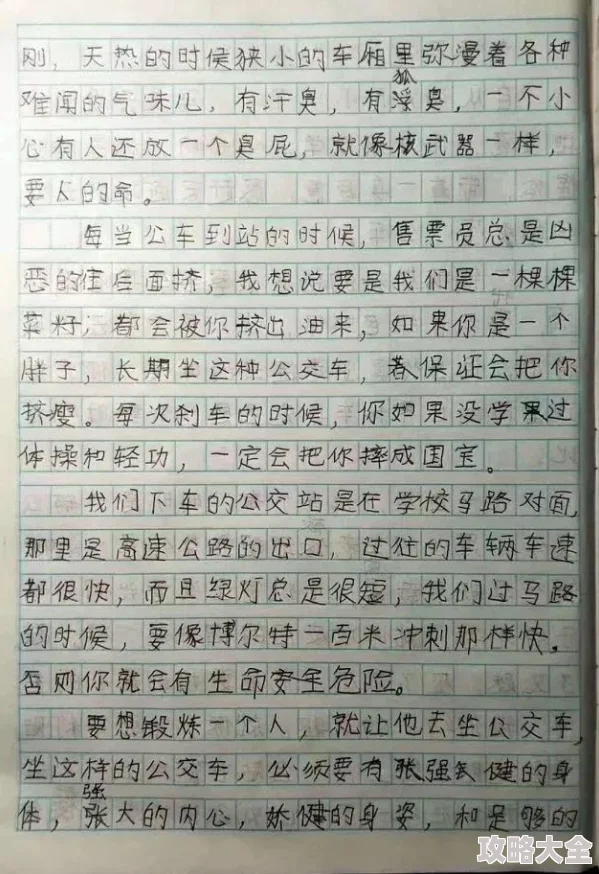 刚，天热的时候狭小的车厢里弥漫着各种
狐
难闻的气味儿，有汗臭，有浮臭，一不小
心有人还放一个臭屁，就像核武器一样，
要人的命。
每当公车到站的时候，售票员总是凶
恶的往后面挤，我想说要是我们是一棵棵
菜籽，都会被你挤出油来，如果你是一个
胖子，长期坐这种公交车，保证会把你
挤瘦。每次刹车的时候，你如果没学过
体操和轻功，一定会把你摔成国宝。
我们下车的公交站是在学校马路对面，
那里是高速公路的出口，过往的车辆车速
都很快，而且绿灯总是很短，我们过马路
的时候，要像博尔特一百米冲刺那样快。
否则你就会有生命安全危险。
要想锻炼一个人，就让他去坐公交车，
坐这样的公交车，必须要有张强健的身
强
体，张大的内心，矫健的身姿，和足够的
攻略大全